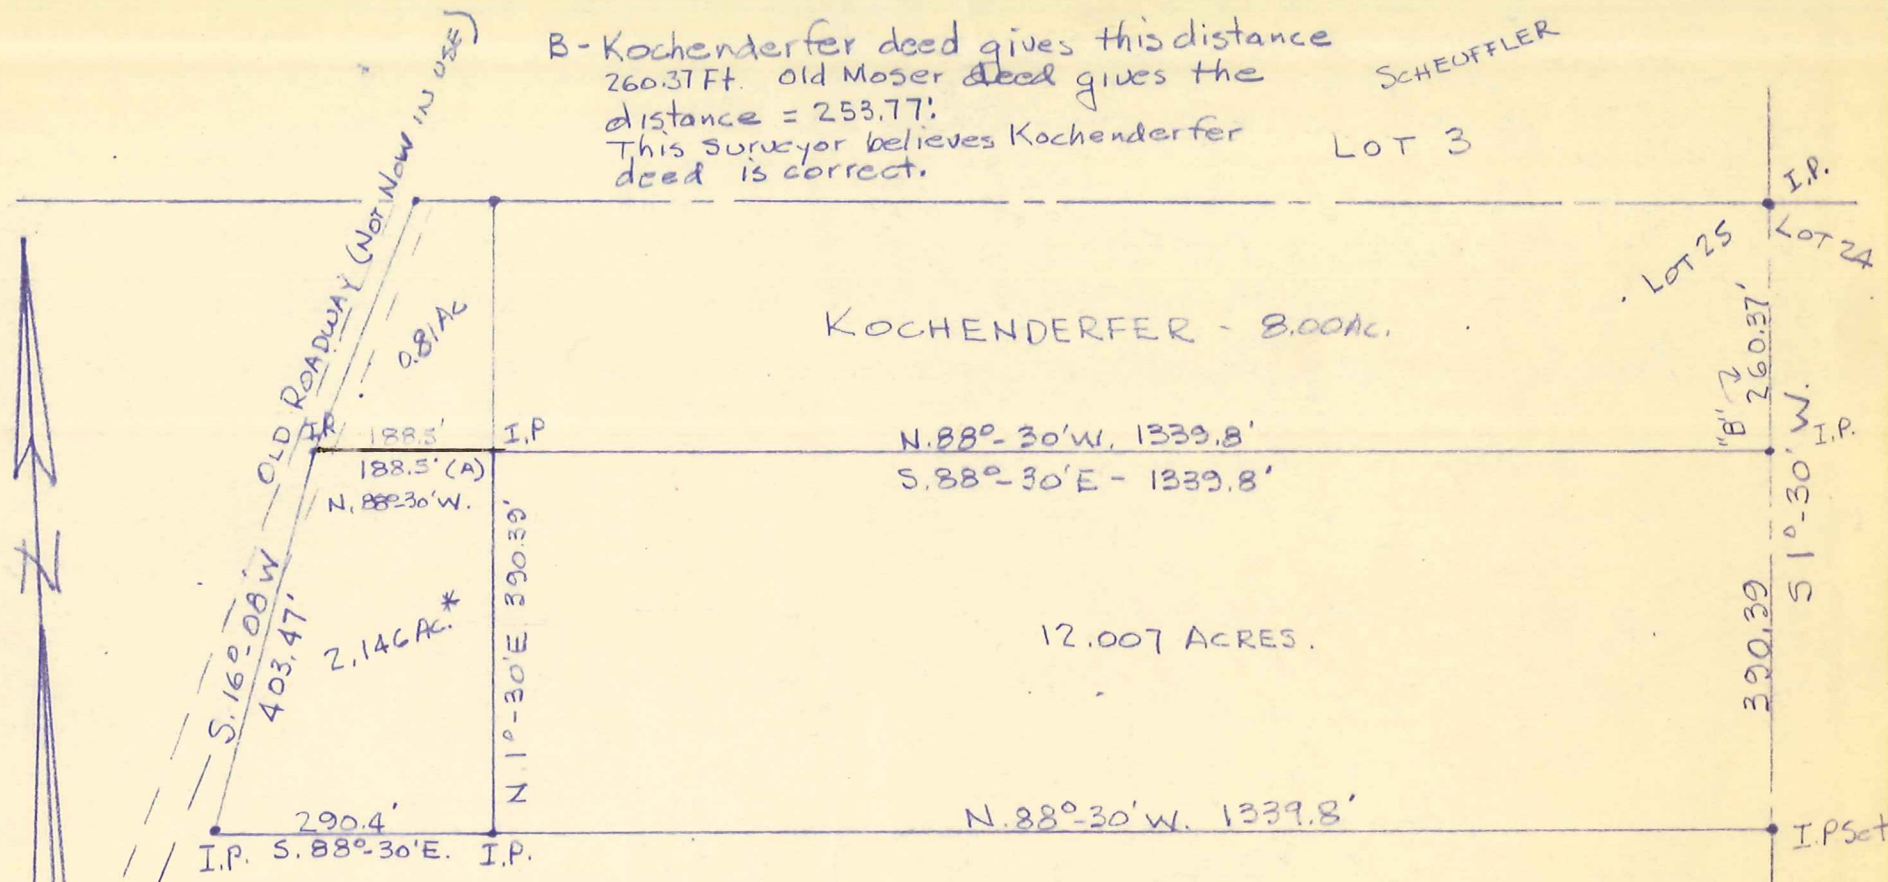 B - Kochenderfer deed gives this distance
260.37 Ft. Old Moser deed gives the
distance = 253.77'.
This Surveyor believes Kochenderfer
deed is correct.
SCHEUFFLER
LOT 3
I.P.
LOT 25
LOT 24
OLD ROADWAY (NOT NOW IN USE)
0.81 AC
KOCHENDERFER - 8.00 AC.
"B"
260.37'
I.P.
188.5'
I.P
N.88°-30'W. 1339.8'
I.P.
188.5' (A)
N.88°-30'W.
S.88°-30'E - 1339.8'
S 1°-30' W.
N
S.16°-08'W
403.47'
2.146 AC.*
N.1°-30'E 390.39'
12.007 ACRES.
390.39
290.4'
N.88°-30'W. 1339.8'
I.P. S.88°-30'E. I.P.
I.P Set